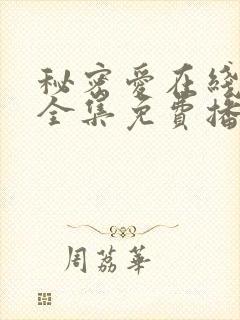 秘密愛在綫
全集免費播
周荔華